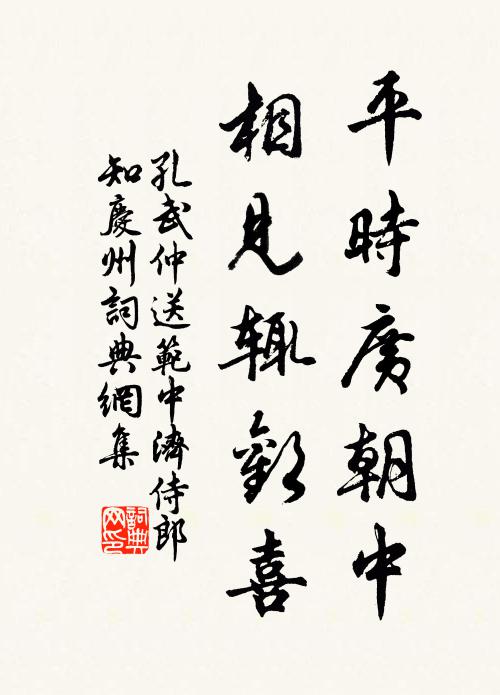 平時廣朝中
相見輒歡喜
孔武仲送範中濟侍郎
知慶州詞典網集
詞典网印